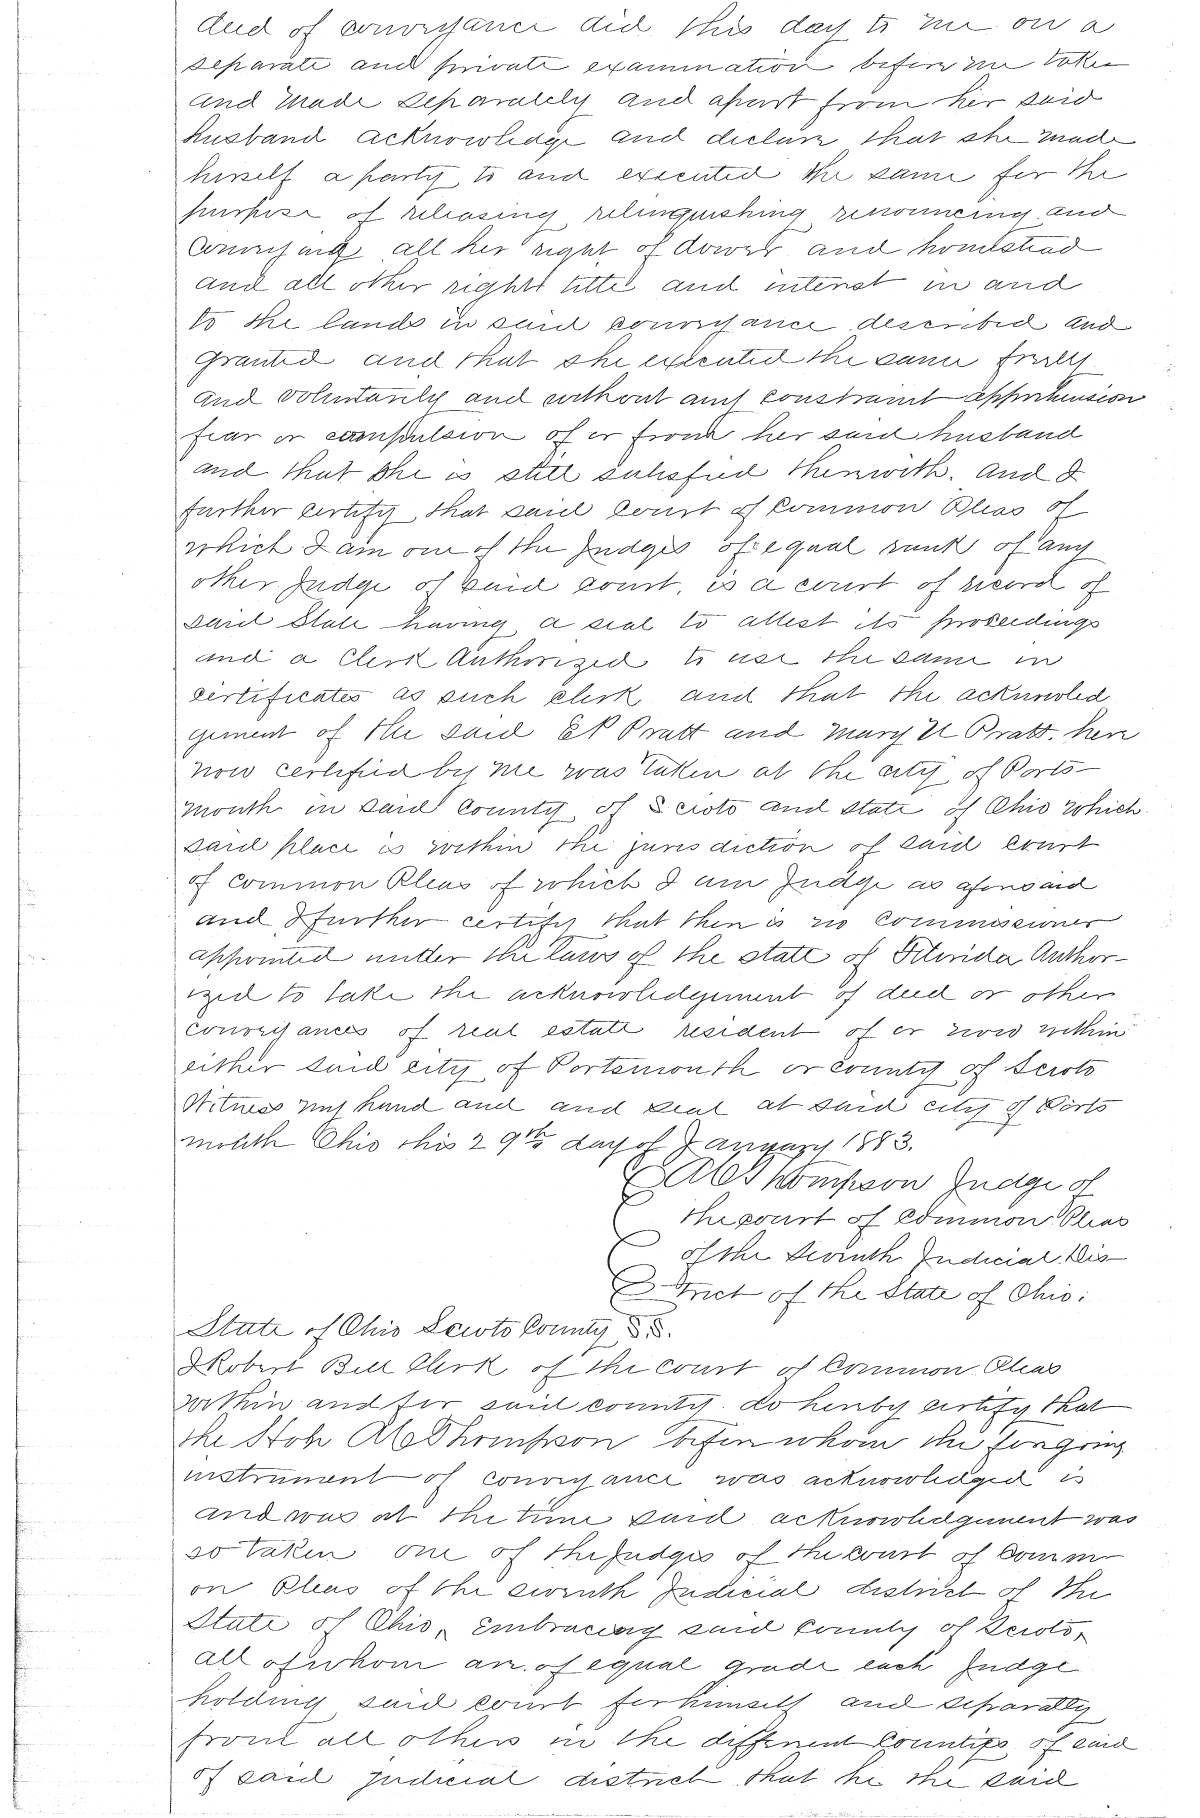 deed of conveyance did this day to me on a
separate and private examination before me taken
and made separately and apart from her said
husband acknowledge and declare that she made
herself a party to and executed the same for the
purpose of releasing relinquishing renouncing and
conveying all her right of dower and homestead
and all other rights title and interest in and
to the lands in said conveyance described and
granted and that she executed the same freely
and voluntarily and without any constraint apprehension
fear or compulsion of or from her said husband
and that she is still satisfied therewith. And I
further certify that said Court of Common Pleas of
which I am one of the Judges of equal rank of any
other Judge of said court, is a court of record of
said State having a seal to attest its proceedings
and a Clerk Authorized to use the same in
certificates as such clerk and that the acknowled
gement of the said E P Pratt and Mary U Pratt. here
now certified by me was taken at the city of Ports-
mouth in said County of Scioto and state of Ohio which
said place is within the jurisdiction of said Court
of Common Pleas of which I am Judge as aforesaid
and I further certify that there is no Commissioner
appointed under the laws of the state of Florida Author-
ized to take the acknowledgement of deed or other
conveyances of real estate resident of or now within
either said city of Portsmouth or County of Scioto
Witness my hand and and seal at said city of Ports
mouth Ohio this 29th day of January 1883.
Thompson Judge of
the court of Common Pleas
of the Seventh Judicial Dis-
trict of the State of Ohio:
State of Ohio Scioto County S.S.
I Robert Bell Clerk of the court of Common Pleas
within and for said county do hereby certify that
the Hon Thompson before whom the foregoing
instrument of conveyance was acknowledged is
and was at the time said acknowledgement was
so taken one of the Judges of the court of Comm
on Pleas of the seventh Judicial district of the
State of Ohio, Embracing said County of Scioto,
all of whom are of equal grade each Judge
holding said court for himself and separately
from all others in the different Counties of said
of said judicial district that he the said